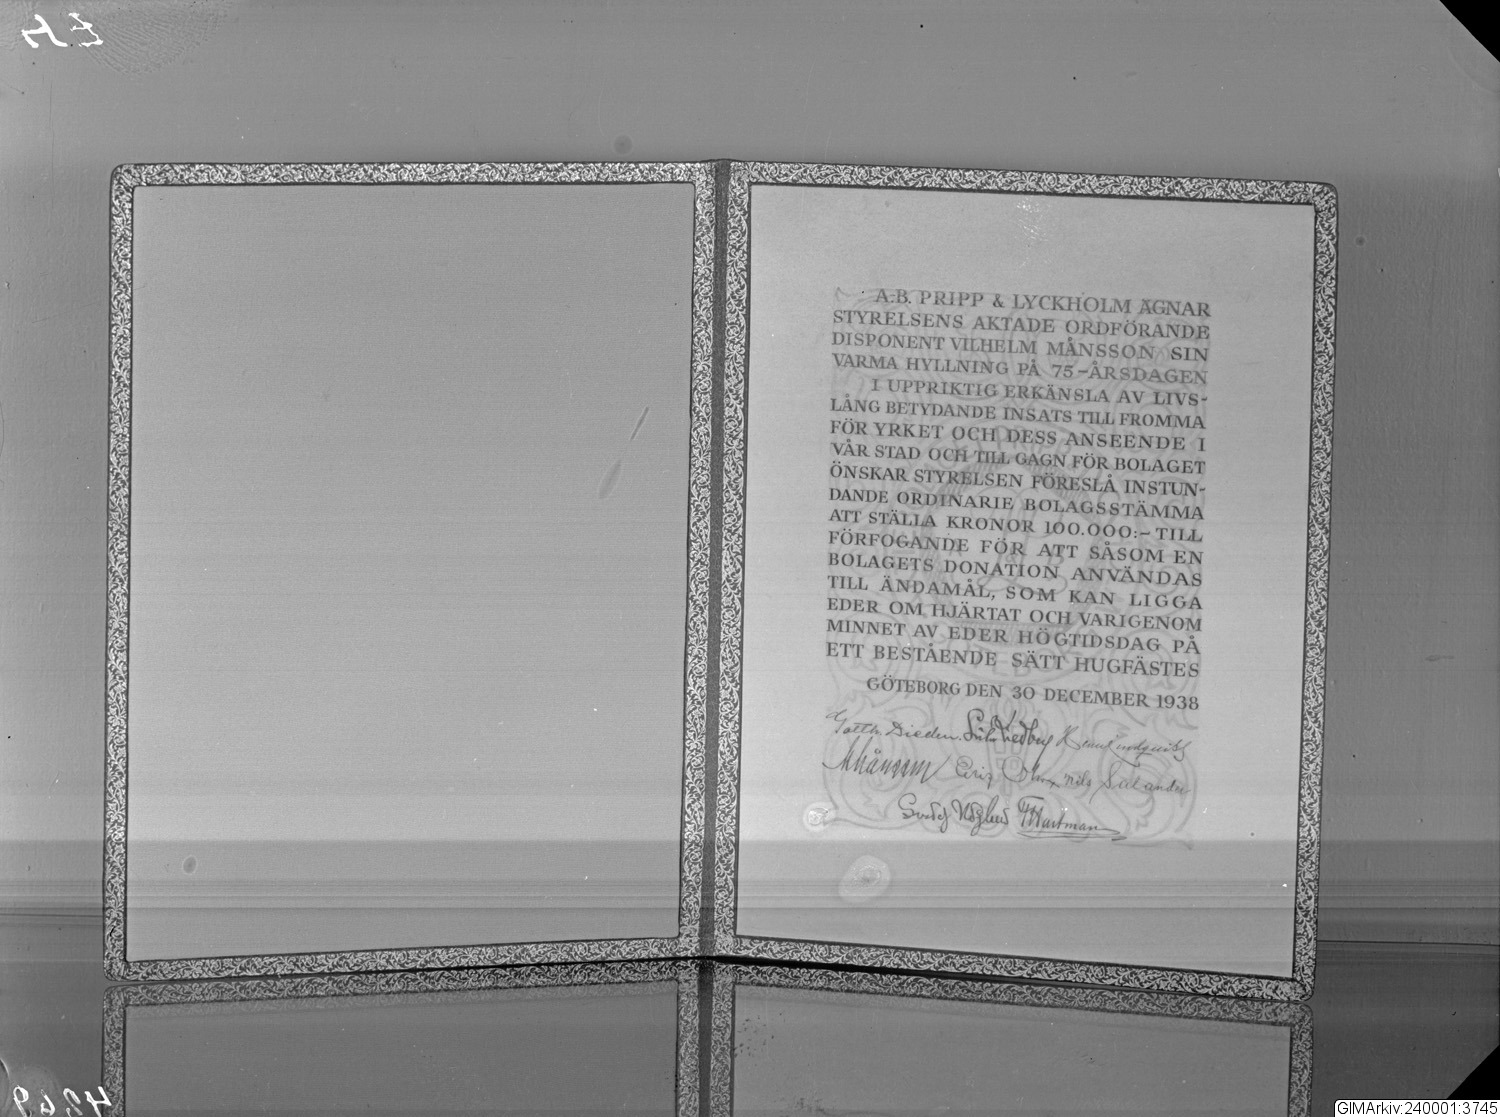 A.-B. PRIPP & LYCKHOLM ÄGNAR
STYRELSENS AKTADE ORDFÖRANDE
DISPONENT VILHELM MÅNSSON SIN
VARMA HYLLNING PÅ 75-ÅRSDAGEN
I UPPRIKTIG ERKÄNSLA AV LIVS-
LÅNG BETYDANDE INSATS TILL FROMMA
FÖR YRKET OCH DESS ANSEENDE I
VÅR STAD OCH TILL GAGN FÖR BOLAGET
ÖNSKAR STYRELSEN FÖRESLÅ INSTUN-
DANDE ORDINARIE BOLAGSSTÄMMA
ATT STÄLLA KRONOR 100.000:- TILL
FÖRFOGANDE FÖR ATT SÅSOM EN
BOLAGETS DONATION ANVÄNDAS
TILL ÄNDAMÅL, SOM KAN LIGGA
EDER OM HJÄRTAT OCH VARIGENOM
MINNET AV EDER HÖGTIDSDAG PÅ
ETT BESTÅENDE SÄTT HUGFÄSTES
GÖTEBORG DEN 30 DECEMBER 1938
Gotth. Dieden
Nils
Hartman
4269
GIMArkiv:240001:3745